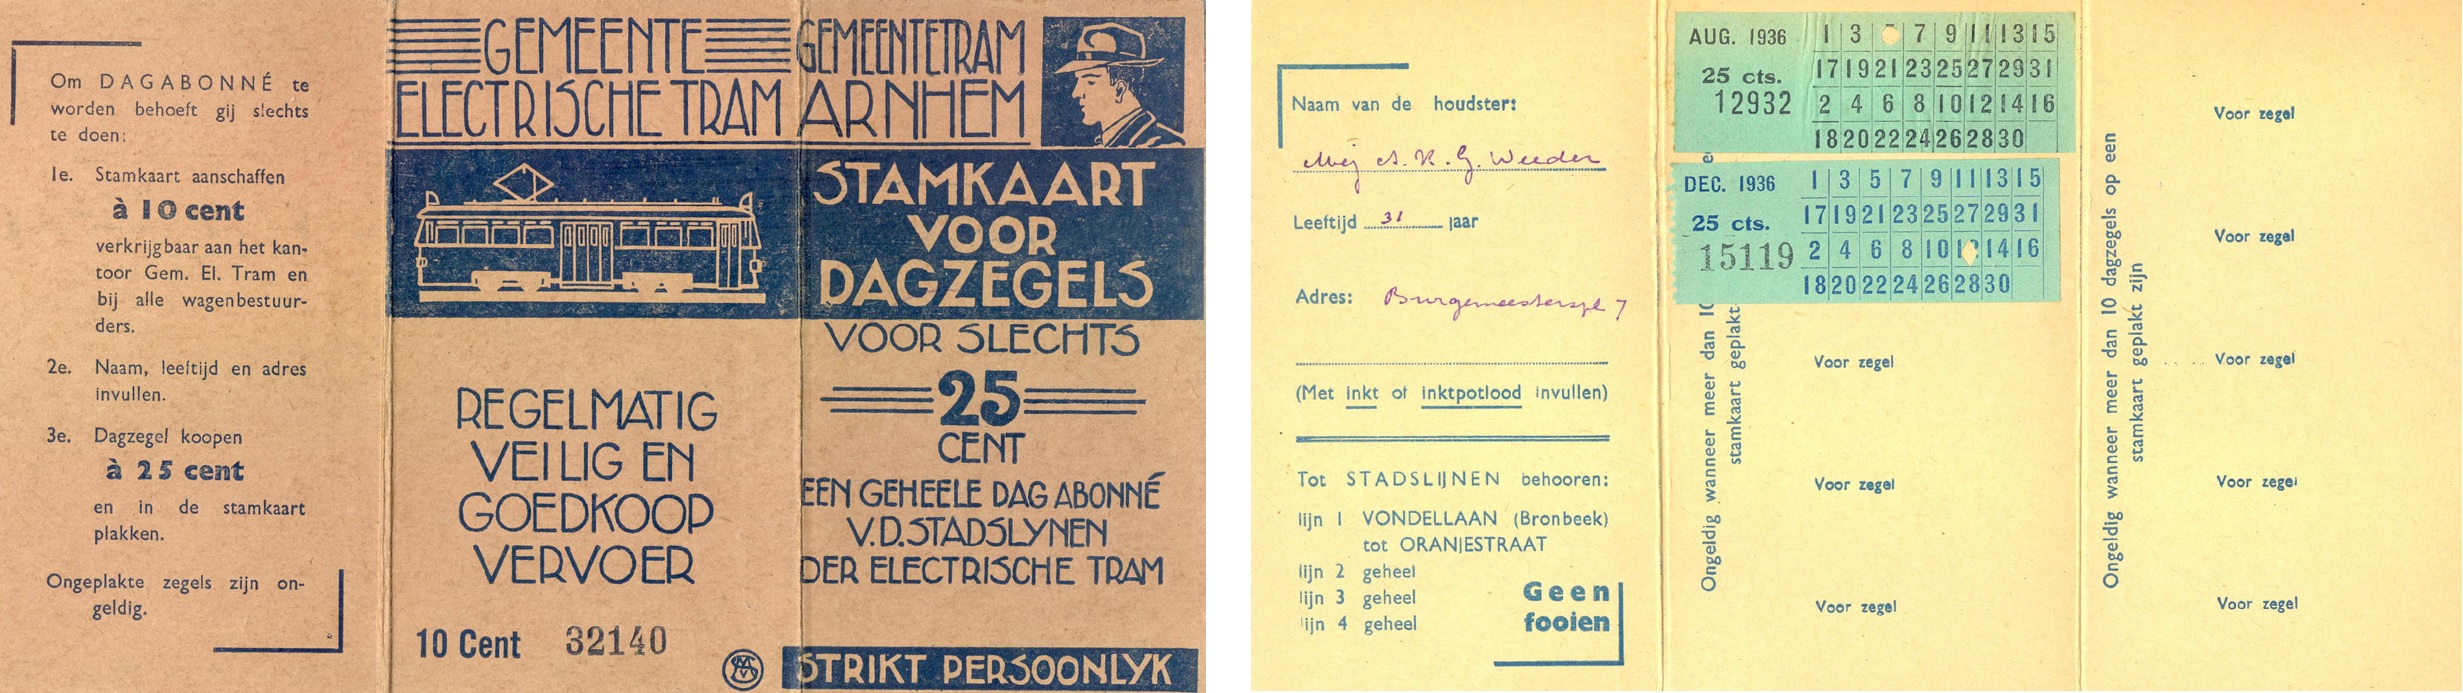 Om DAGABONNÉ te
worden behoeft gij slechts
te doen:
1e. Stamkaart aanschaffen
à 10 cent
verkrijgbaar aan het kan-
toor Gem. El. Tram en
bij alle wagenbestuur-
ders.
2e. Naam, leeftijd en adres
invullen.
3e. Dagzegel koopen
à 25 cent
en in de stamkaart
plakken.
Ongeplakte zegels zijn on-
geldig.
GEMEENTE
ELECTRISCHE TRAM
REGELMATIG
VEILIG EN
GOEDKOOP
VERVOER
10 Cent 32140
GEMEENTETRAM
ARNHEM
STAMKAART
VOOR
DAGZEGELS
VOOR SLECHTS
25
CENT
EEN GEHEELE DAG ABONNÉ
V.D. STADSLYNEN
DER ELECTRISCHE TRAM
STRIKT PERSOONLYK
Naam van de houdster:
Mej A. K. G. Weeder
Leeftijd 31 jaar
Adres: Burgemeesterspl 7
(Met inkt of inktpotlood invullen)
Tot STADSLIJNEN behooren:
lijn 1 VONDELLAAN (Bronbeek)
tot ORANJESTRAAT
lijn 2 geheel
lijn 3 geheel
lijn 4 geheel
Geen
fooien
AUG. 1936
25 cts.
12932
1 3 7 9 11 13 15
17 19 21 23 25 27 29 31
2 4 6 8 10 12 14 16
18 20 22 24 26 28 30
DEC. 1936
25 cts.
15119
1 3 5 7 9 11 13 15
17 19 21 23 25 27 29 31
2 4 6 8 10 14 16
18 20 22 24 26 28 30
Ongeldig wanneer meer dan 10
stamkaart geplakt
Voor zegel
Voor zegel
Voor zegel
Ongeldig wanneer meer dan 10 dagzegels op een
stamkaart geplakt zijn
Voor zegel
Voor zegel
Voor zegel
Voor zegel
Voor zegel